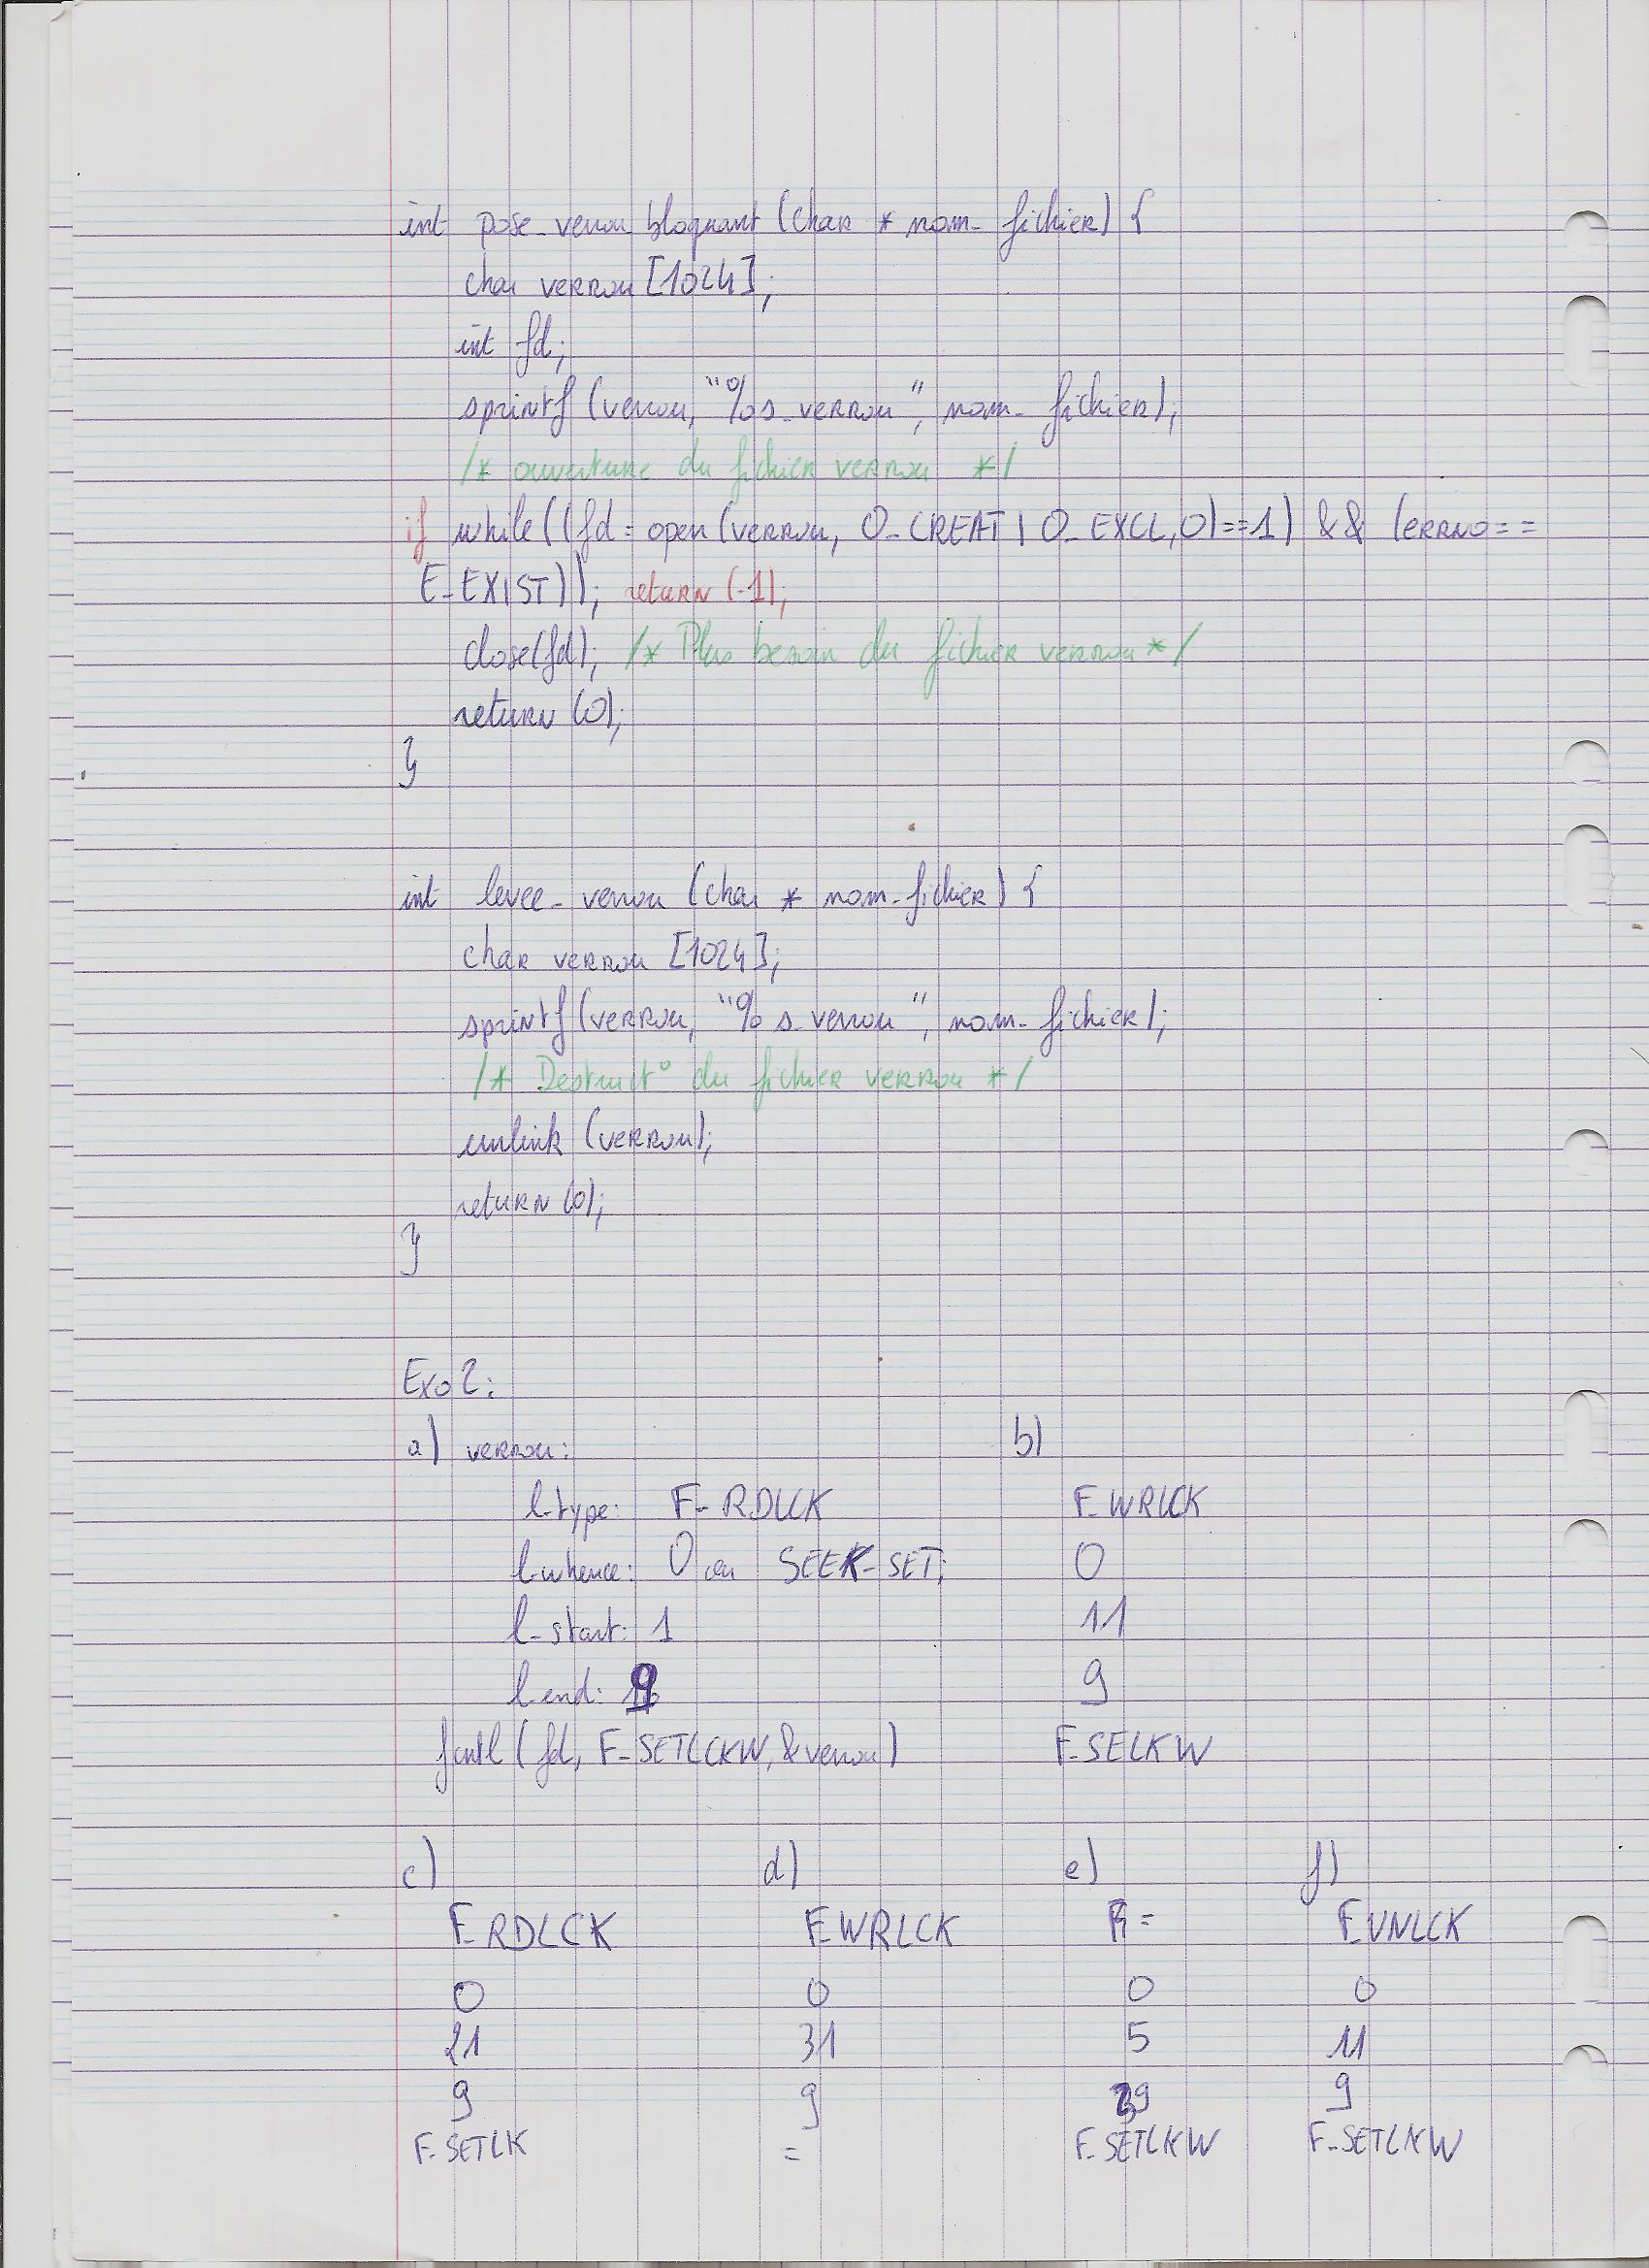 int pose_verrou_bloquant (char * nom_fichier) {
char verrou [1024];
int fd;
sprintf (verrou, "%s_verrou", nom_fichier);
/* ouverture du fichier verrou */
if while((fd = open (verrou, O_CREAT | O_EXCL, 0)==1) && (errno==
E_EXIST)); return (-1);
close(fd); /* Plus besoin du fichier verrou */
return (0);
}
int levee_verrou (char * nom_fichier) {
char verrou [1024];
sprintf (verrou, "%s_verrou", nom_fichier);
/* Destruct° du fichier verrou */
unlink (verrou);
return (0);
}
Exo 2:
a) verrou: b)
l_type: F_RDLCK F_WRLCK
l_whence: 0 ou SEEK_SET; 0
l_start: 1 11
l_end: 9 9
fcntl (fd, F_SETLCKW, &verrou) F_SELKW
c) d) e) f)
F_RDLCK F_WRLCK = F_UNLCK
0 0 0 0
21 31 5 11
9 9 39 9
F_SETLK = F_SETLKW F_SETLKW